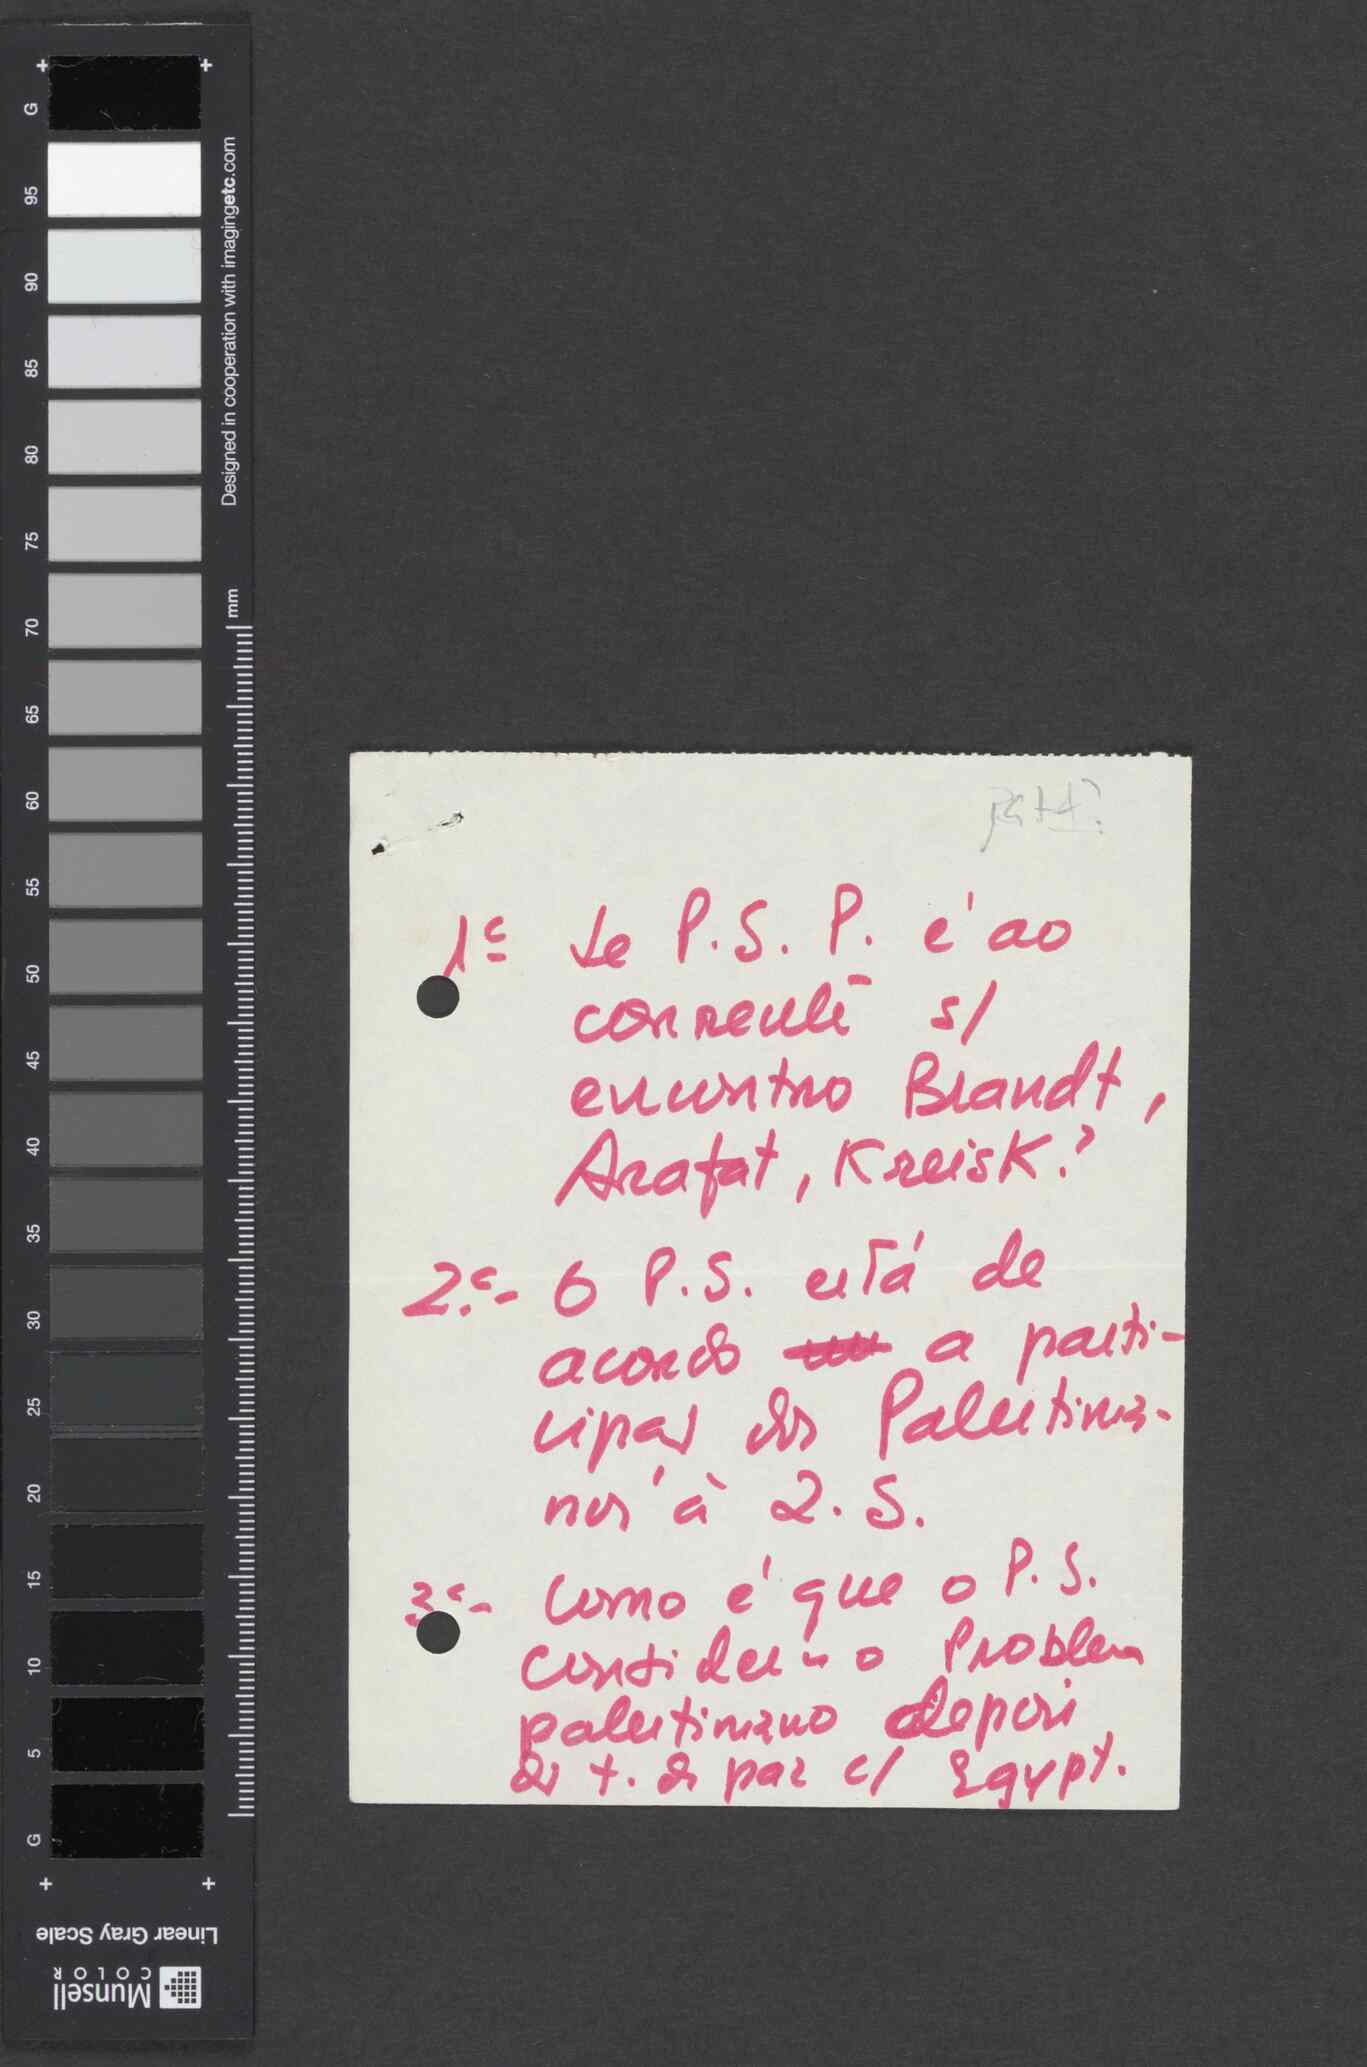 G
95
90
85
80
75
70
65
60
55
50
45
40
35
30
25
20
15
10
5
G
Designed in cooperation with imagingetc.com
mm
Linear Gray Scale
Munsell
COLOR
1º Se P.S.P. é ao
corrente s/
encontro Brandt,
Arafat, Kreisk?
2.º- O P.S. está de
acordo a parti-
cipar dos Palestinia-
nos à I.S.
3º- Como é que o P.S.
considera o Problema
palestiniano depois
do t. de paz c/ Egypt.